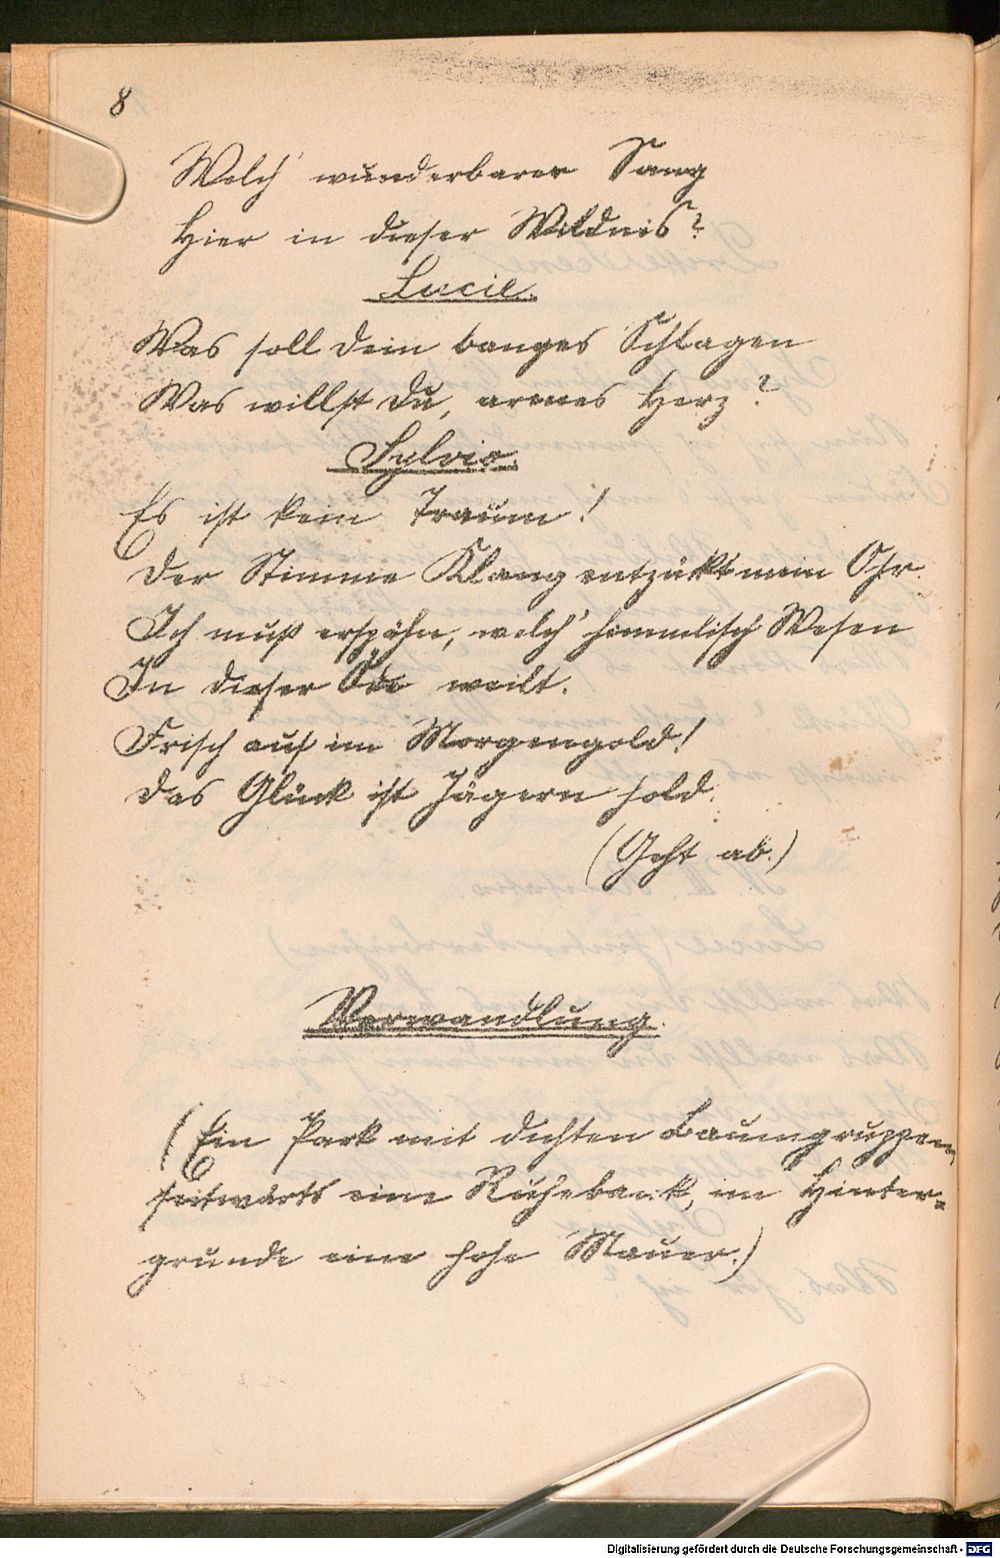 8
Welch' wunderbarer Sang
Hier in dieser Wildnis?
Lucie.
Was soll dein banges Schlagen
Was willst Du, armes Herz?
Sylvio.
Es ist kein Traum!
Der Stimme Klang entzükt mein Ohr.
Ich muß erspähn, welch' himmlisch Wesen
In dieser Öde weilt.
Frisch auf im Morgengold!
Das Glück ist Jägern hold.
(Geht ab.)
Verwandlung.
(Ein Park mit dichten Baumgruppen,
seitwärts eine Ruhebank, im Hinter-
grunde eine hohe Mauer.)
Digitalisierung gefördert durch die Deutsche Forschungsgemeinschaft - DFG